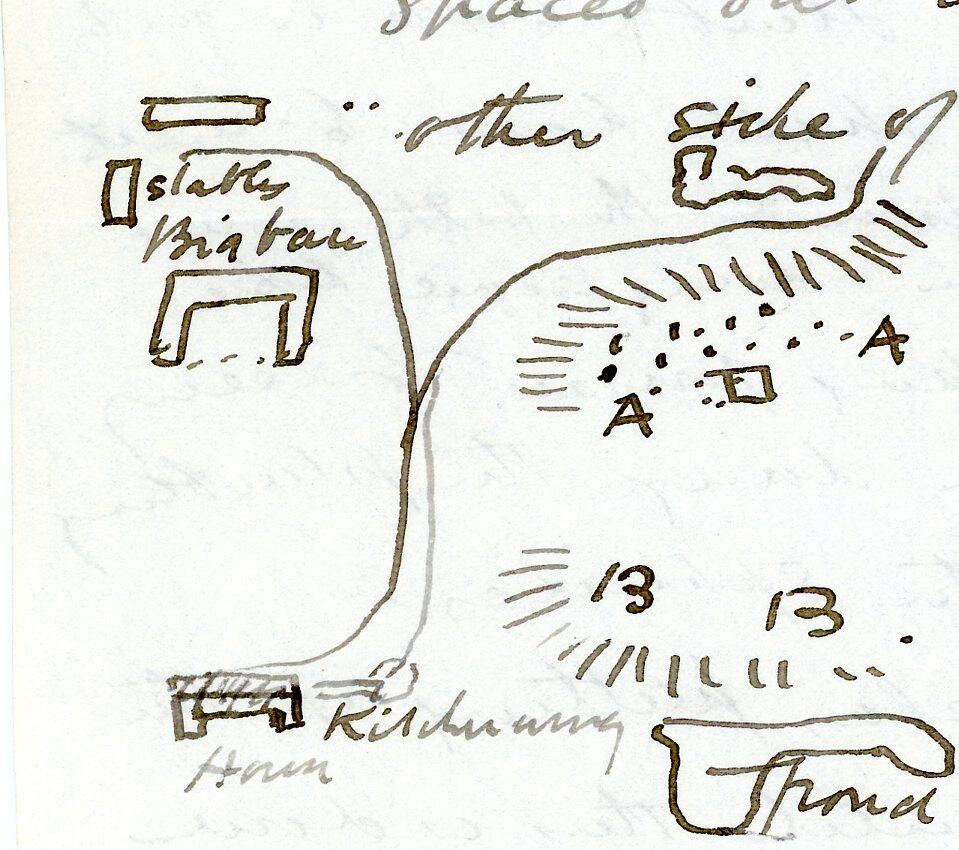 Spaces out
other side of
stables
Big barn
A
A
B B
Kitchen wing
House
pond